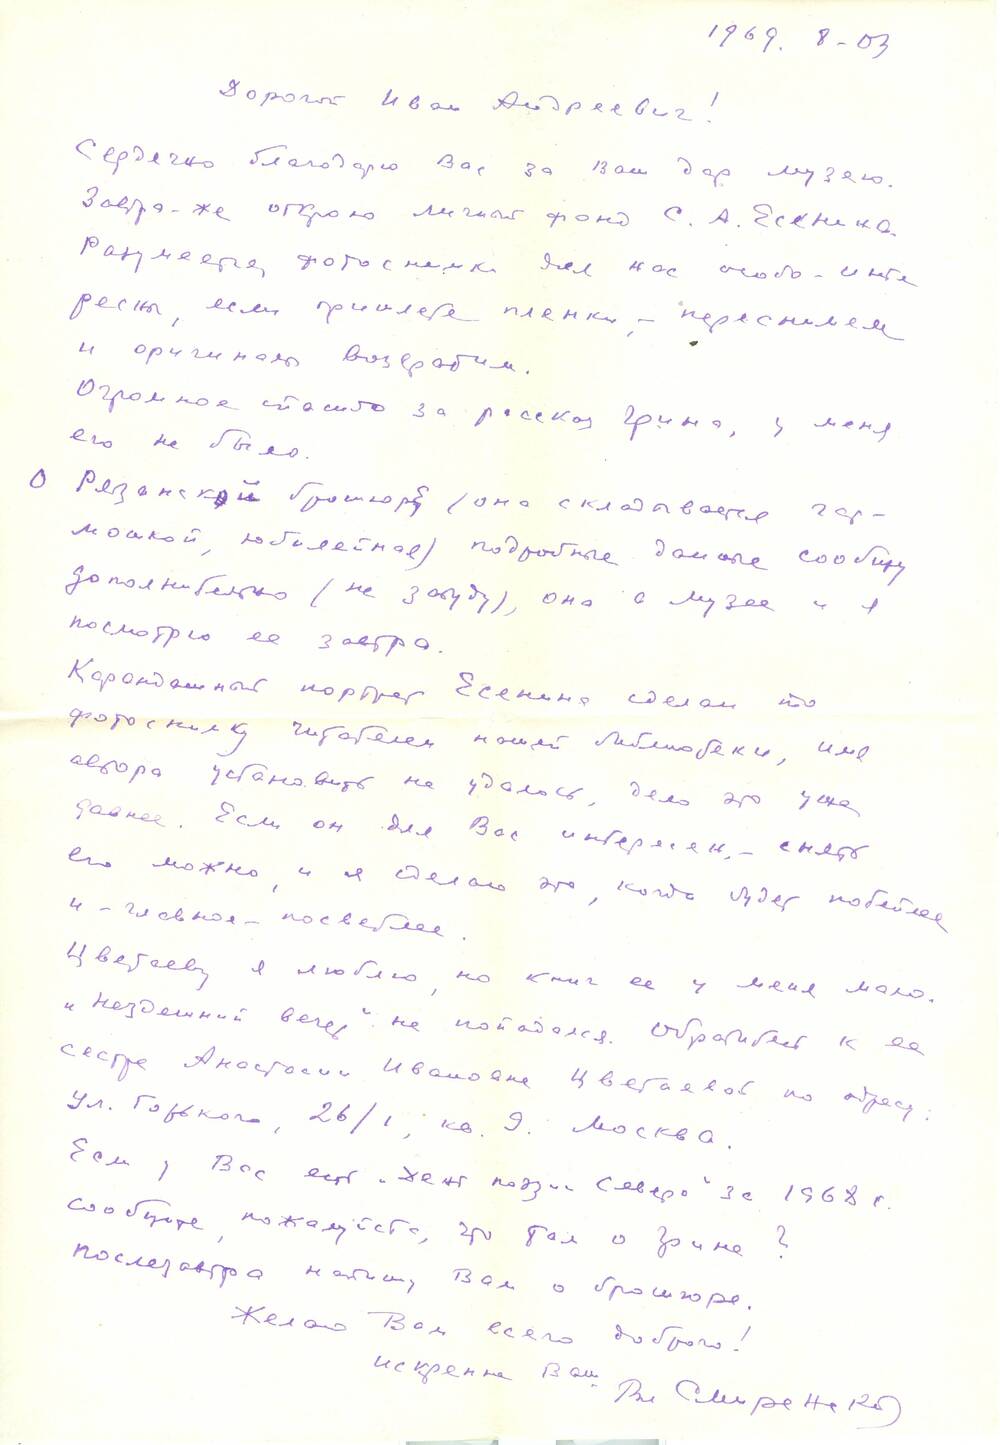 1969. 8-03
Дорогой Иван Андреевич!
Сердечно благодарю Вас за Ваш дар музею.
Завтра-же открою личный фонд С. А. Есенина.
Разумеется, фотоснимки для нас особо-инте
ресны, если пришлете пленки, - переснимем
и оригиналы возвратим.
Огромное спасибо за рассказ Грина, у меня
его не было.
О Рязанской брошюре (она складывается гар-
мошкой, юбилейная) подробные данные сообщу
дополнительно (не забуду), она в музее и я
посмотрю ее завтра.
Карандашный портрет Есенина сделан по
фотоснимку читателем нашей библиотеки, имя
автора установить не удалось, дело это уже
давнее. Если он для Вас интересен, - снять
его можно, и я сделаю это, когда будет потеплее
и - главное - посветлее.
Цветаеву я люблю, но книг ее у меня мало.
"Нездешний вечер" не попадался. Обратитесь к ее
сестре Анастасии Ивановне Цветаевой по адресу:
ул. Горького, 26/1, кв. 9. Москва.
Если у Вас есть "День поэзии Севера" за 1968 г.
сообщите, пожалуйста, что там о Грине?
Послезавтра напишу Вам о брошюре.
Желаю Вам всего доброго!
искренне Ваш Вл Смиренск